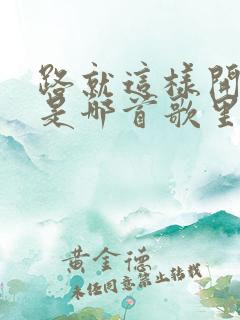 路就這樣開
是哪首歌里
黃金德
未經同意禁止轉載